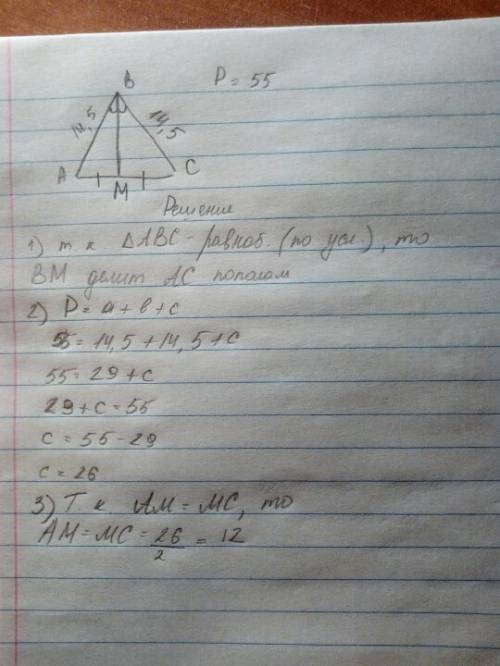 B
P = 55
14,5
14,5
A
C
M
Решение
1) т к △ABC - равноб. (по усл.), то
BM делит AC пополам
2) P = a + b + c
55 = 14,5 + 14,5 + c
55 = 29 + c
29 + c = 55
c = 55 - 29
c = 26
3) Т. к AM = MC, то
AM = MC = 26/2 = 12